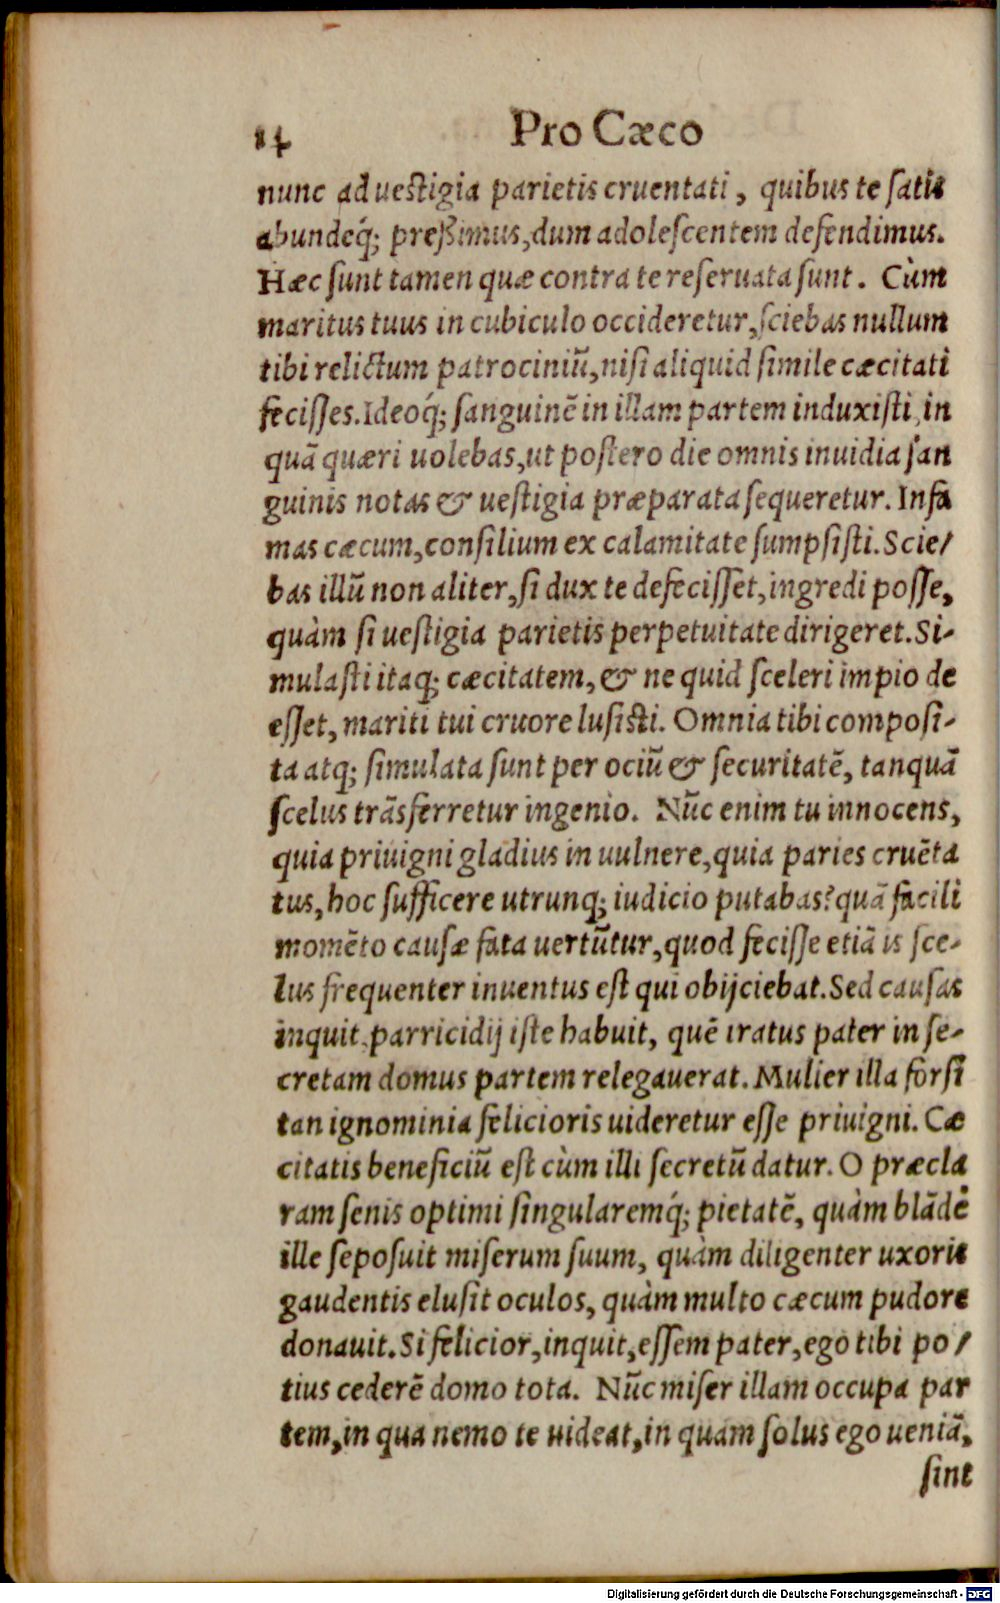 14 Pro Cæco
nunc ad uestigia parietis cruentati, quibus te satis
abundeq́; preßimus, dum adolescentem defendimus.
Hæc sunt tamen quæ contra te reseruata sunt. Cùm
maritus tuus in cubiculo occideretur, sciebas nullum
tibi relictum patrociniũ, nisi aliquid simile cæcitati
fecisses. Ideoq́; sanguinẽ in illam partem induxisti, in
quã quæri uolebas, ut postero die omnis inuidia san
guinis notas & uestigia præparata sequeretur. Infa
mas cæcum, consilium ex calamitate sumpsisti. Scie/
bas illũ non aliter, si dux te defecisset, ingredi posse,
quàm si uestigia parietis perpetuitate dirigeret. Si-
mulasti itaq; cæcitatem, & ne quid sceleri impio de
esset, mariti tui cruore lusisti. Omnia tibi composi-
ta atq; simulata sunt per ociũ & securitatẽ, tanquã
scelus trãsferretur ingenio. Nũc enim tu innocens,
quia priuigni gladius in uulnere, quia paries cruẽta
tus, hoc sufficere utrunq; iudicio putabas? quã facili
momẽto causæ fata uertũtur, quod fecisse etiã is sce-
lus frequenter inuentus est qui obijciebat. Sed causas
inquit, parricidij iste habuit, quẽ iratus pater in se-
cretam domus partem relegauerat. Mulier illa forsi
tan ignominia felicioris uideretur esse priuigni. Cæ
citatis beneficiũ est cùm illi secretũ datur. O præcla
ram senis optimi singularemq́; pietatẽ, quàm blãdè
ille seposuit miserum suum, quàm diligenter uxoris
gaudentis elusit oculos, quàm multo cæcum pudore
donauit. Si felicior, inquit, essem pater, ego tibi po/
tius cederẽ domo tota. Nũc miser illam occupa par
tem, in qua nemo te uideat, in quam solus ego ueniã,
sint
Digitalisierung gefördert durch die Deutsche Forschungsgemeinschaft - DFG